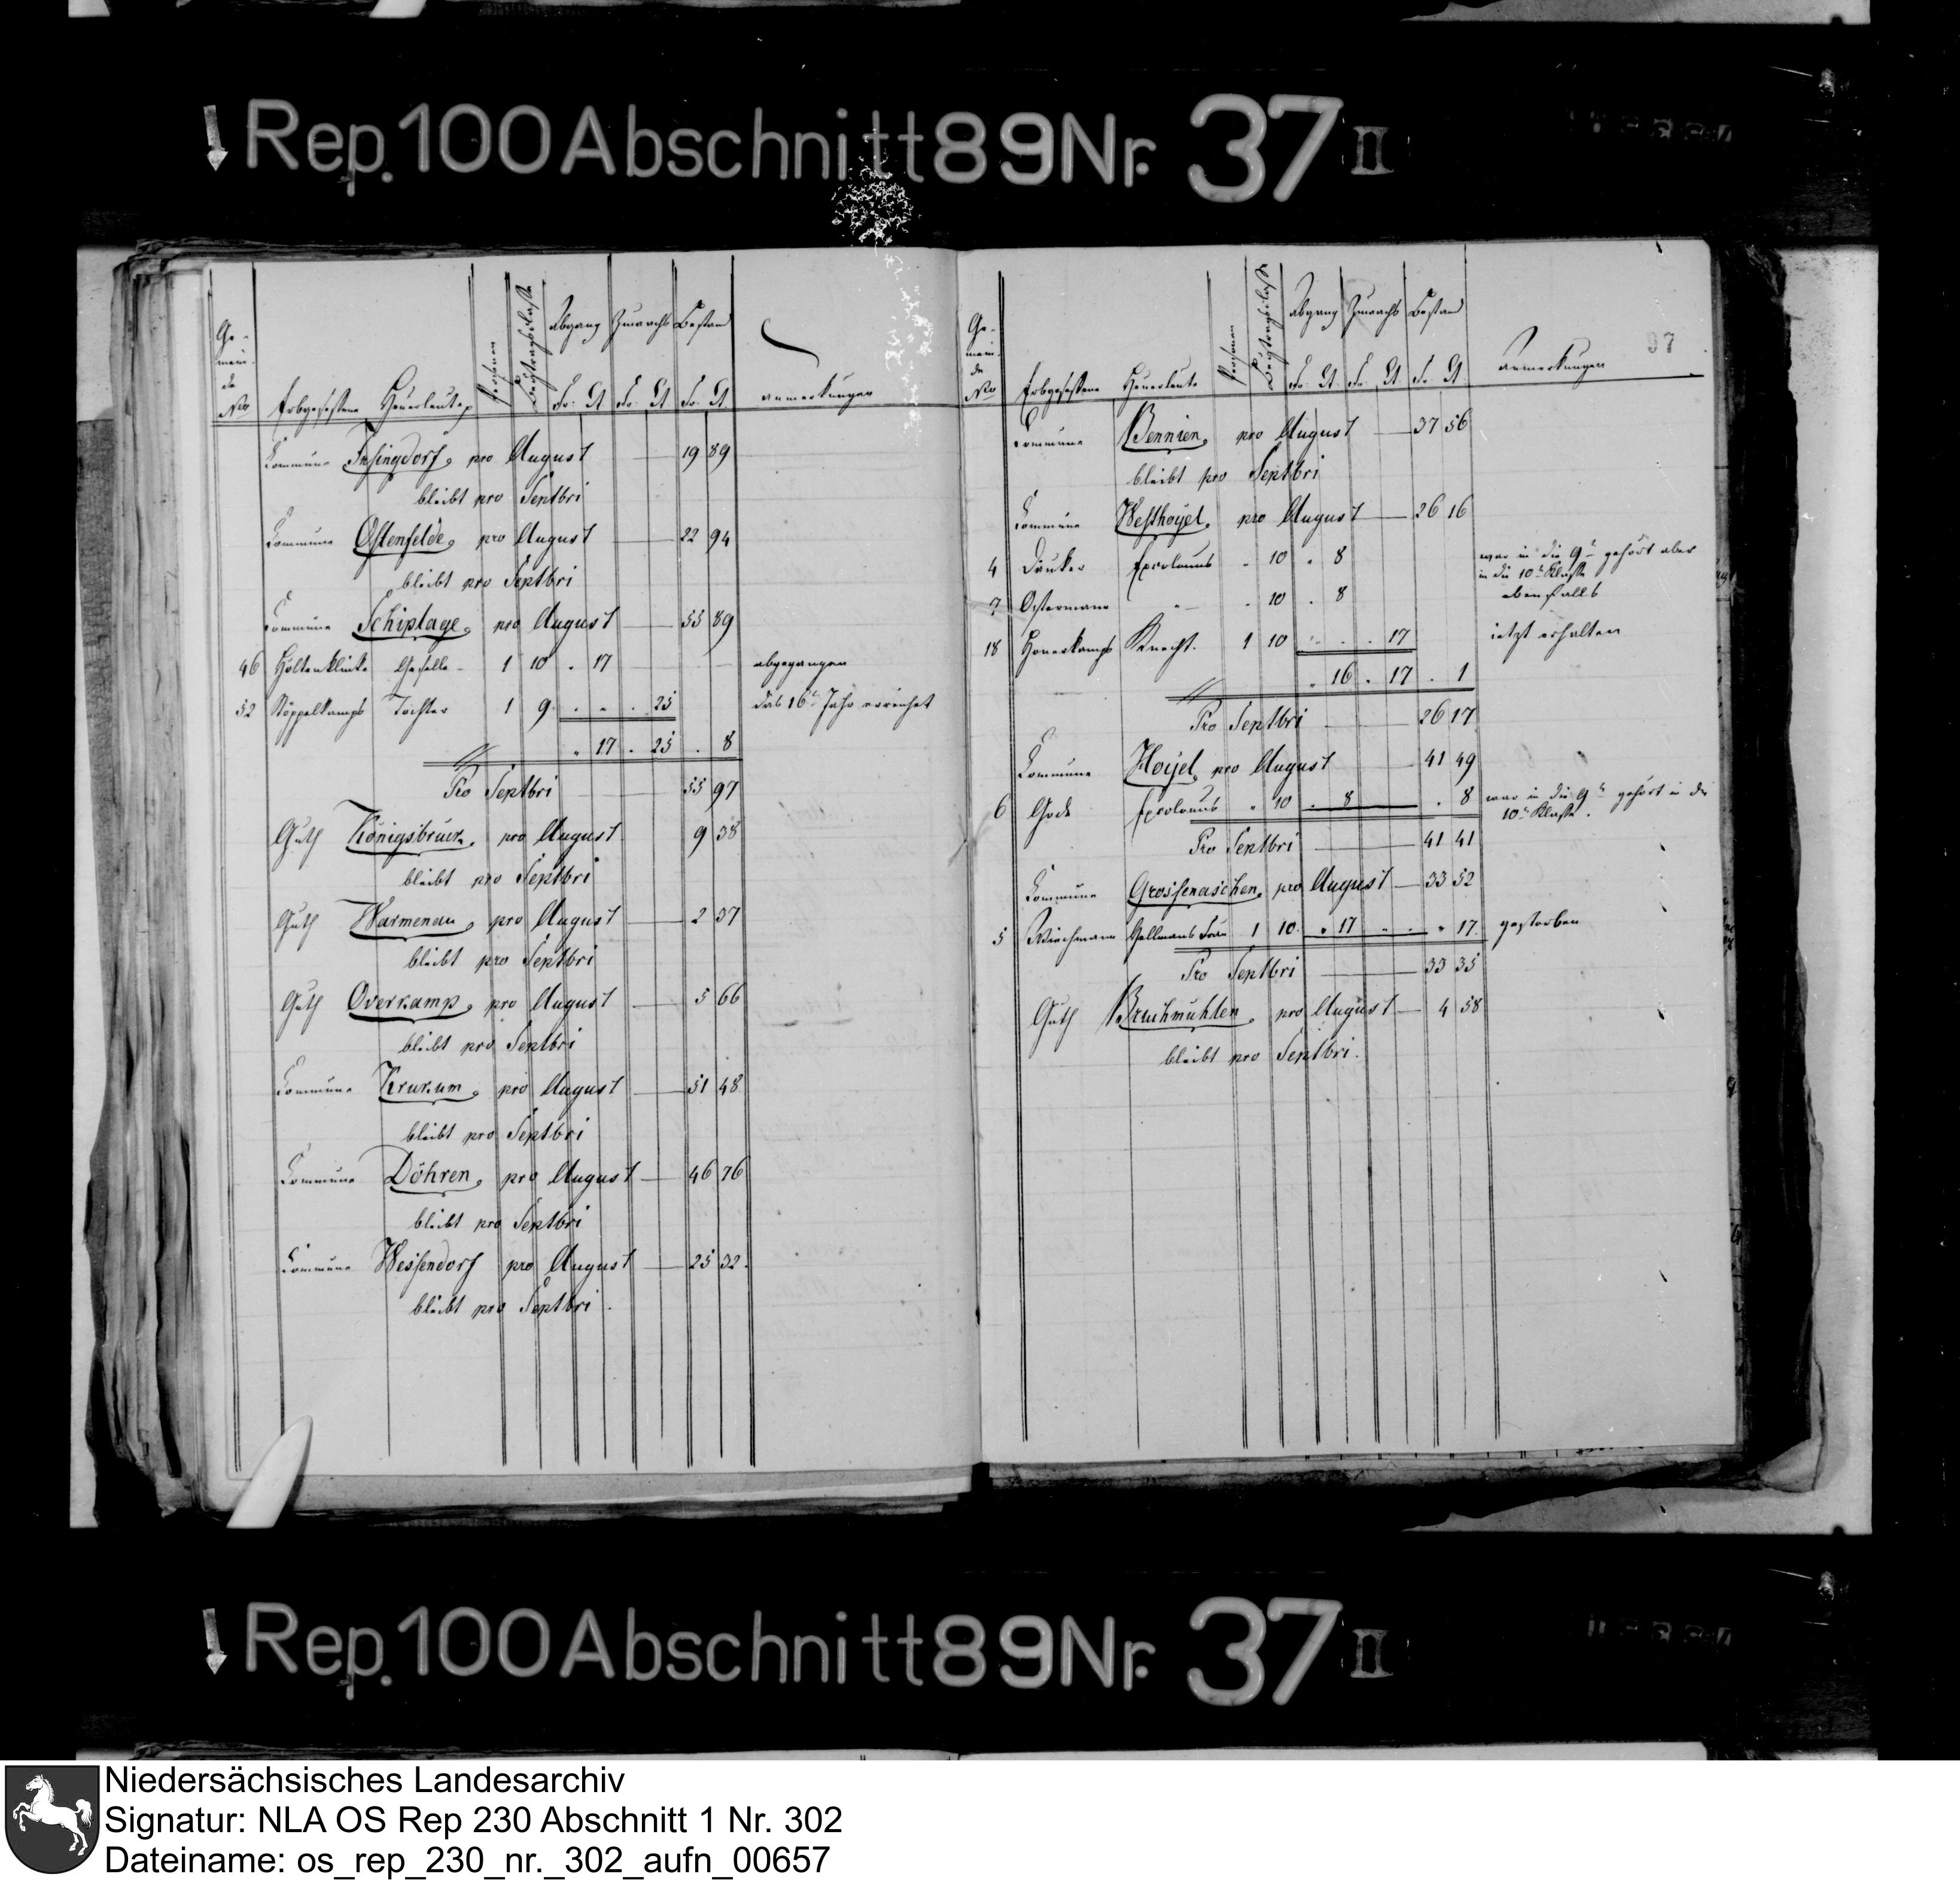 Rep. 100 Abschnitt 89 Nr. 37 II
Ge-
mein-
de
No
Erbgesessene Heuerleute
Personen
Beytragsclasse
Abgang Zuwachs Bestand
Fr. Ct Fr. Ct Fr. Ct
Anmerkungen
Commune Insingdorf, pro August 19 89
bleibt pro Septbri
Commune Ostenfelde, pro August 22 94
bleibt pro Septbri
Commune Schiplage, pro August 55 89
46 Holtenklinke Geselle 1 10 . 17 abgegangen
52 Köppelkamps Tochter 1 9 . . . 25 das 16te Jahr erreichet
. 17 . 25 . 8
Pro Septbri 55 97
Guth Königsbruck, pro August 9 38
bleibt pro Septbri
Guth Warmenau, pro August 2 37
bleibt pro Septbri
Guth Overkamp, pro August 5 66
bleibt pro Septbri
Commune Krukum, pro August 51 48
bleibt pro Septbri
Commune Döhren, pro August 46 76
bleibt pro Septbri
Commune Wessendorf pro August 25 32.
bleibt pro Septbri.
97
Ge-
mein-
de
No
Erbgesessene Heuerleute
Personen
Beytragsclasse
Abgang Zuwachs Bestand
Fr. Ct. Fr. Ct. Fr. Ct.
Anmerkungen
Commune Bennien, pro August 37 56
bleibt pro Septbri
Commune Westhoyel, pro August 26 16
4 Däuker Excolonus . 10 . 8 war in die 9te gehört aber
in die 10te Klasse
7 Ostermann " . 10 . 8 ebenfalls
18 Honerkamps Knecht. 1 10 . . . 17 jetzt erhalten
. 16 . 17 . 1
Pro Septbri 26 17
Commune Hoyel, pro August 41 49
6 Gode Excolonus . 10 . 8 . 8 war in die 9te gehört in die
10te Klasse.
Pro Septbri 41 41
Commune Grossenaschen, pro August 33 52
5 Wiechmann Hallmanns Frau 1 10 . 17 . . . 17. gestorben
Pro Septbri 33 35
Guth Bruchmühlen, pro August 4 58
bleibt pro Septbri.
Rep. 100 Abschnitt 89 Nr. 37 II
Niedersächsisches Landesarchiv
Signatur: NLA OS Rep 230 Abschnitt 1 Nr. 302
Dateiname: os_rep_230_nr._302_aufn_00657